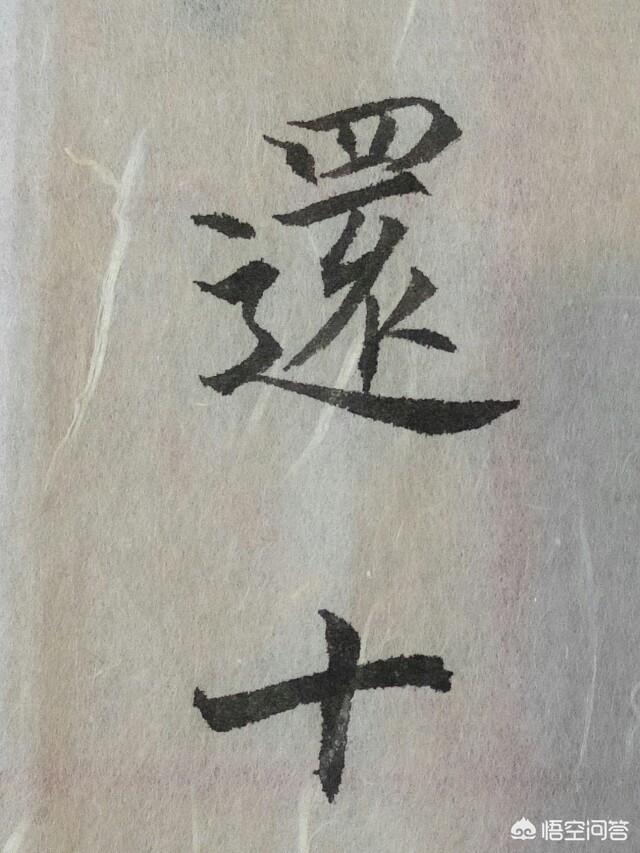 還
十
悟空问答